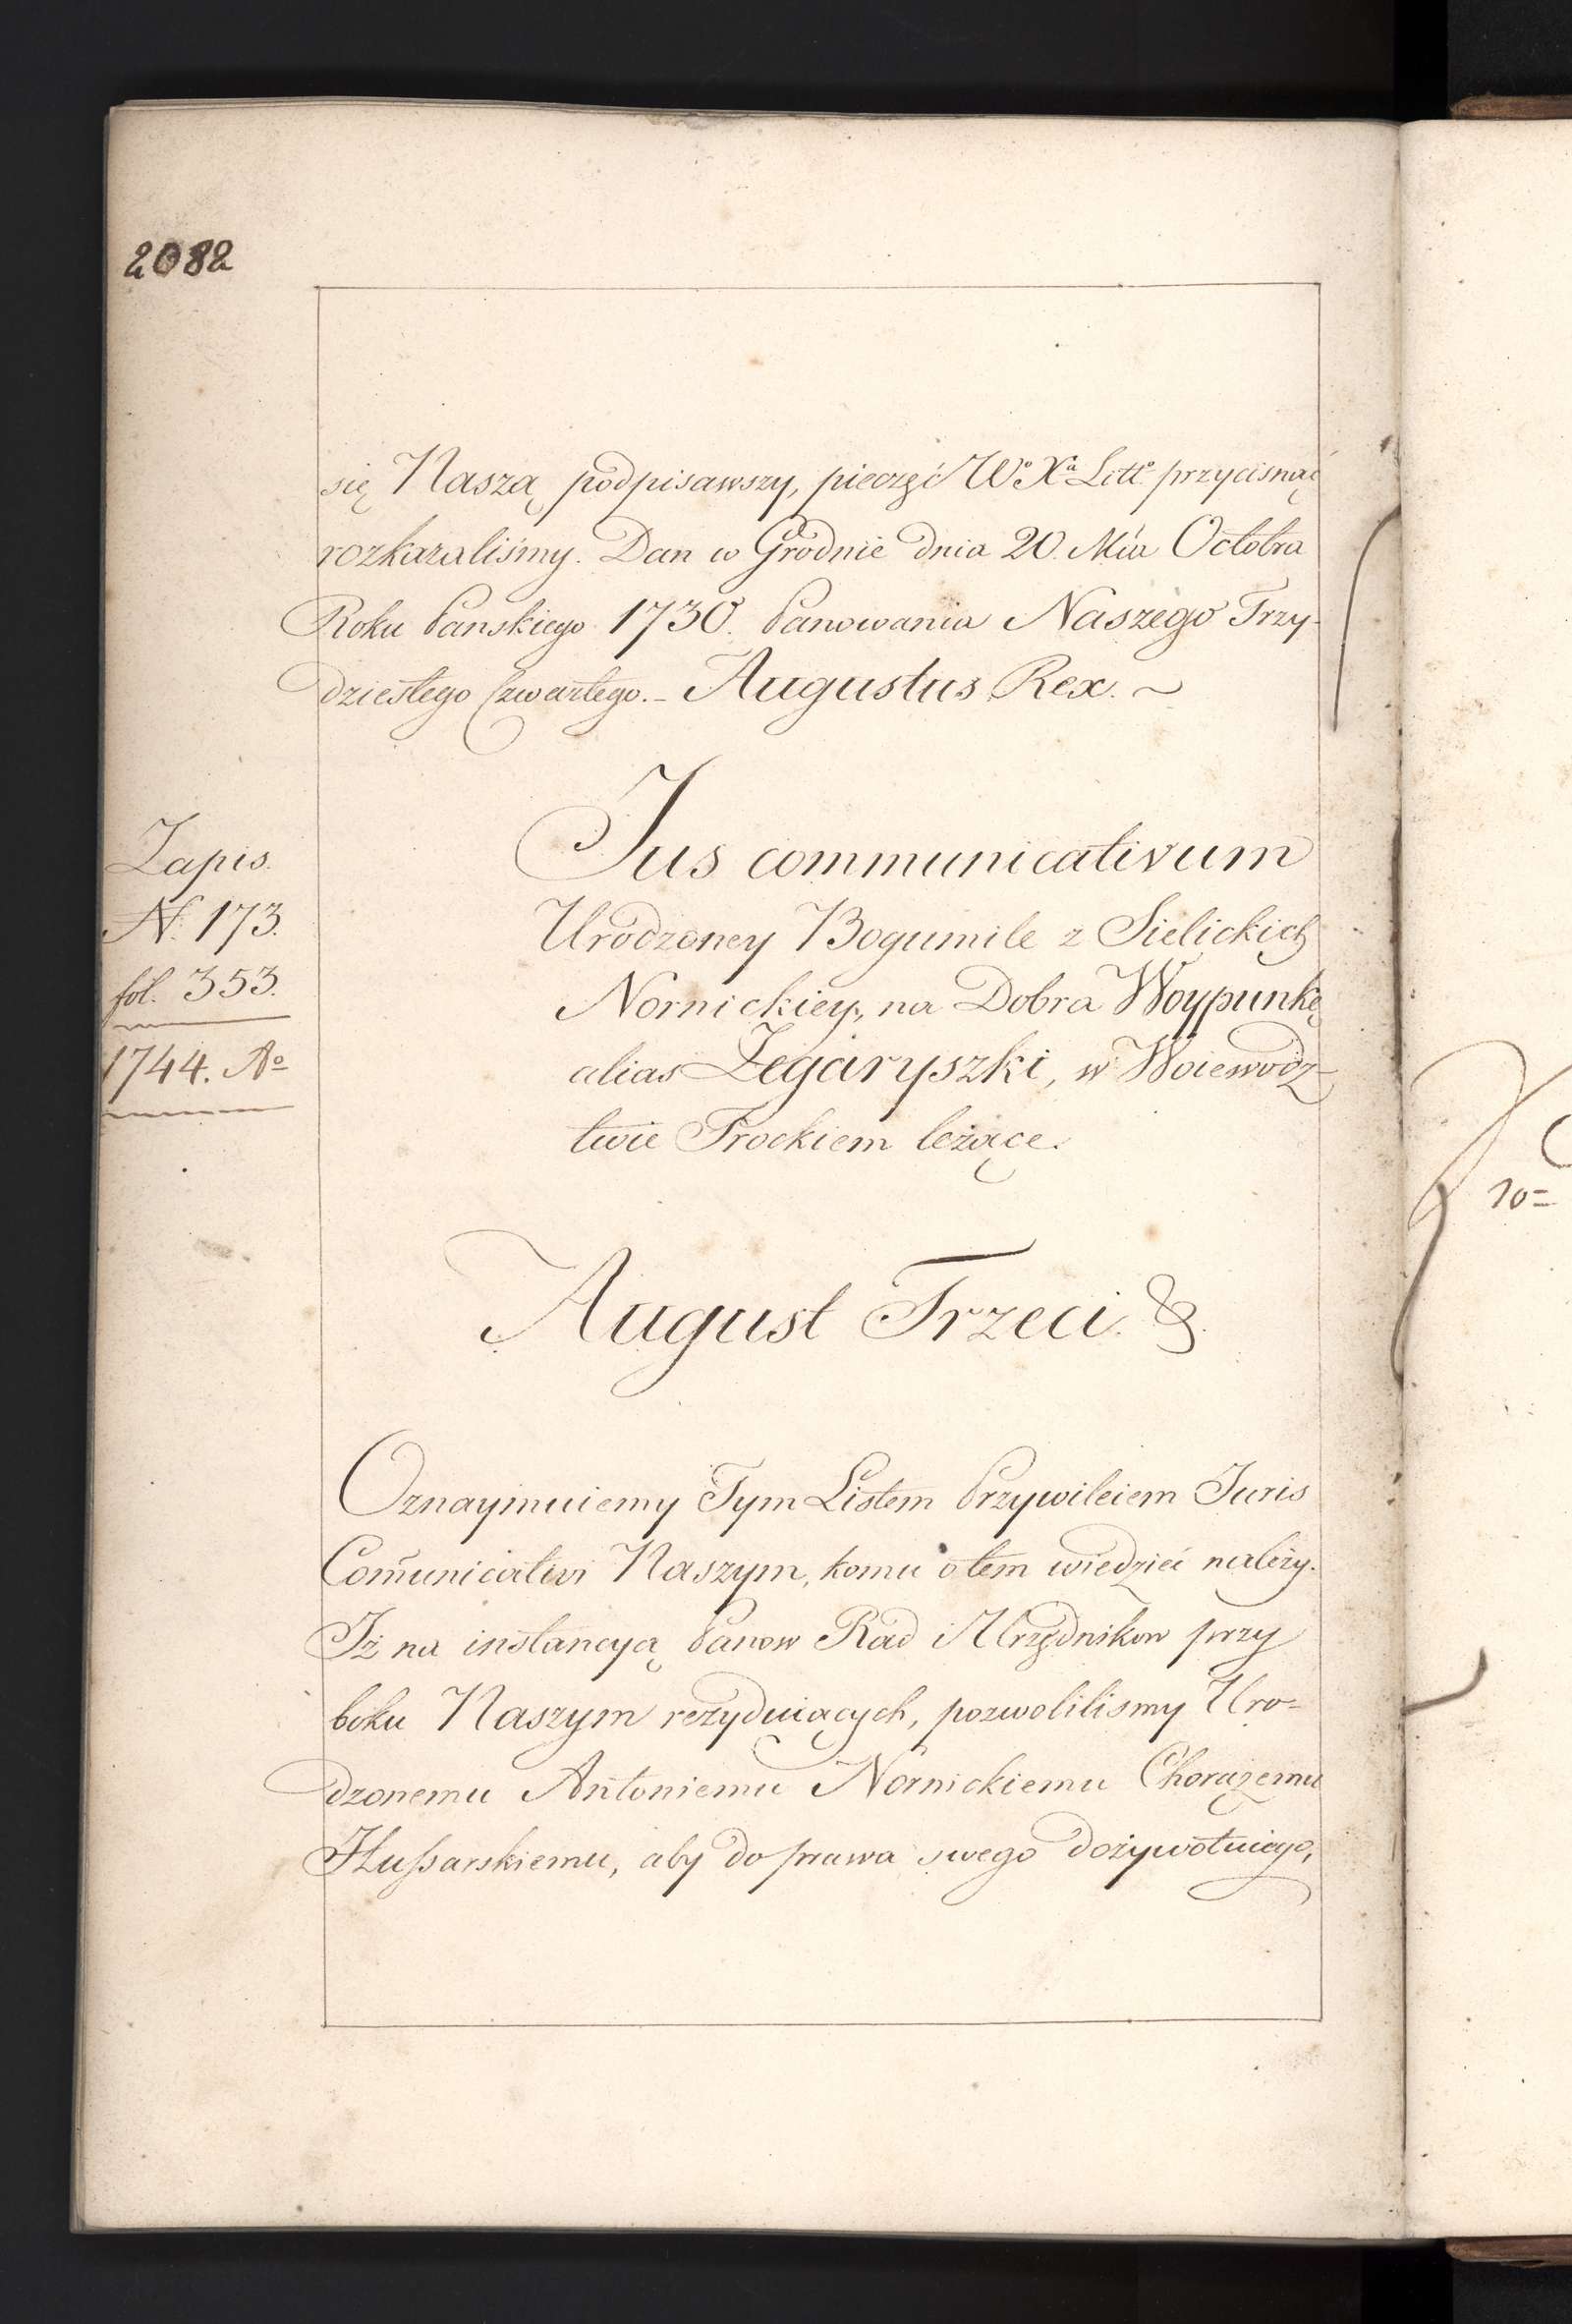 2082
się Naszą podpisawszy, pieczęć Wº Xª Littº przycisnąć
rozkazaliśmy. Dan w Grodnie dnia 20. Mia Octobra
Roku Panskiego 1730. Panowania Naszego Trzy-
dziestego Czwartego. - Augustus Rex. ~
Zapis.
N. 173.
fol. 353.
1744. Aº
Jus communicativum
Urodzoney Bogumile z Sielickich
Nornickiey, na Dobra Woypunkę
alias Zegaryszki, w Woiewodz-
twie Trockiem leżące.
August Trzeci. &.
Oznaymuiemy Tym Listem Przywileiem Juris
Com̃unicativi Naszym, komu o tem wiedzieć należy.
Iż na instancyą Panow Rad i Urzędnikow przy
boku Naszym rezyduiących, pozwolilismy Uro=
dzonemu Antoniemu Nornickiemu Chorążemu
Hussarskiemu, aby do prawa swego dożywotniego,
10=